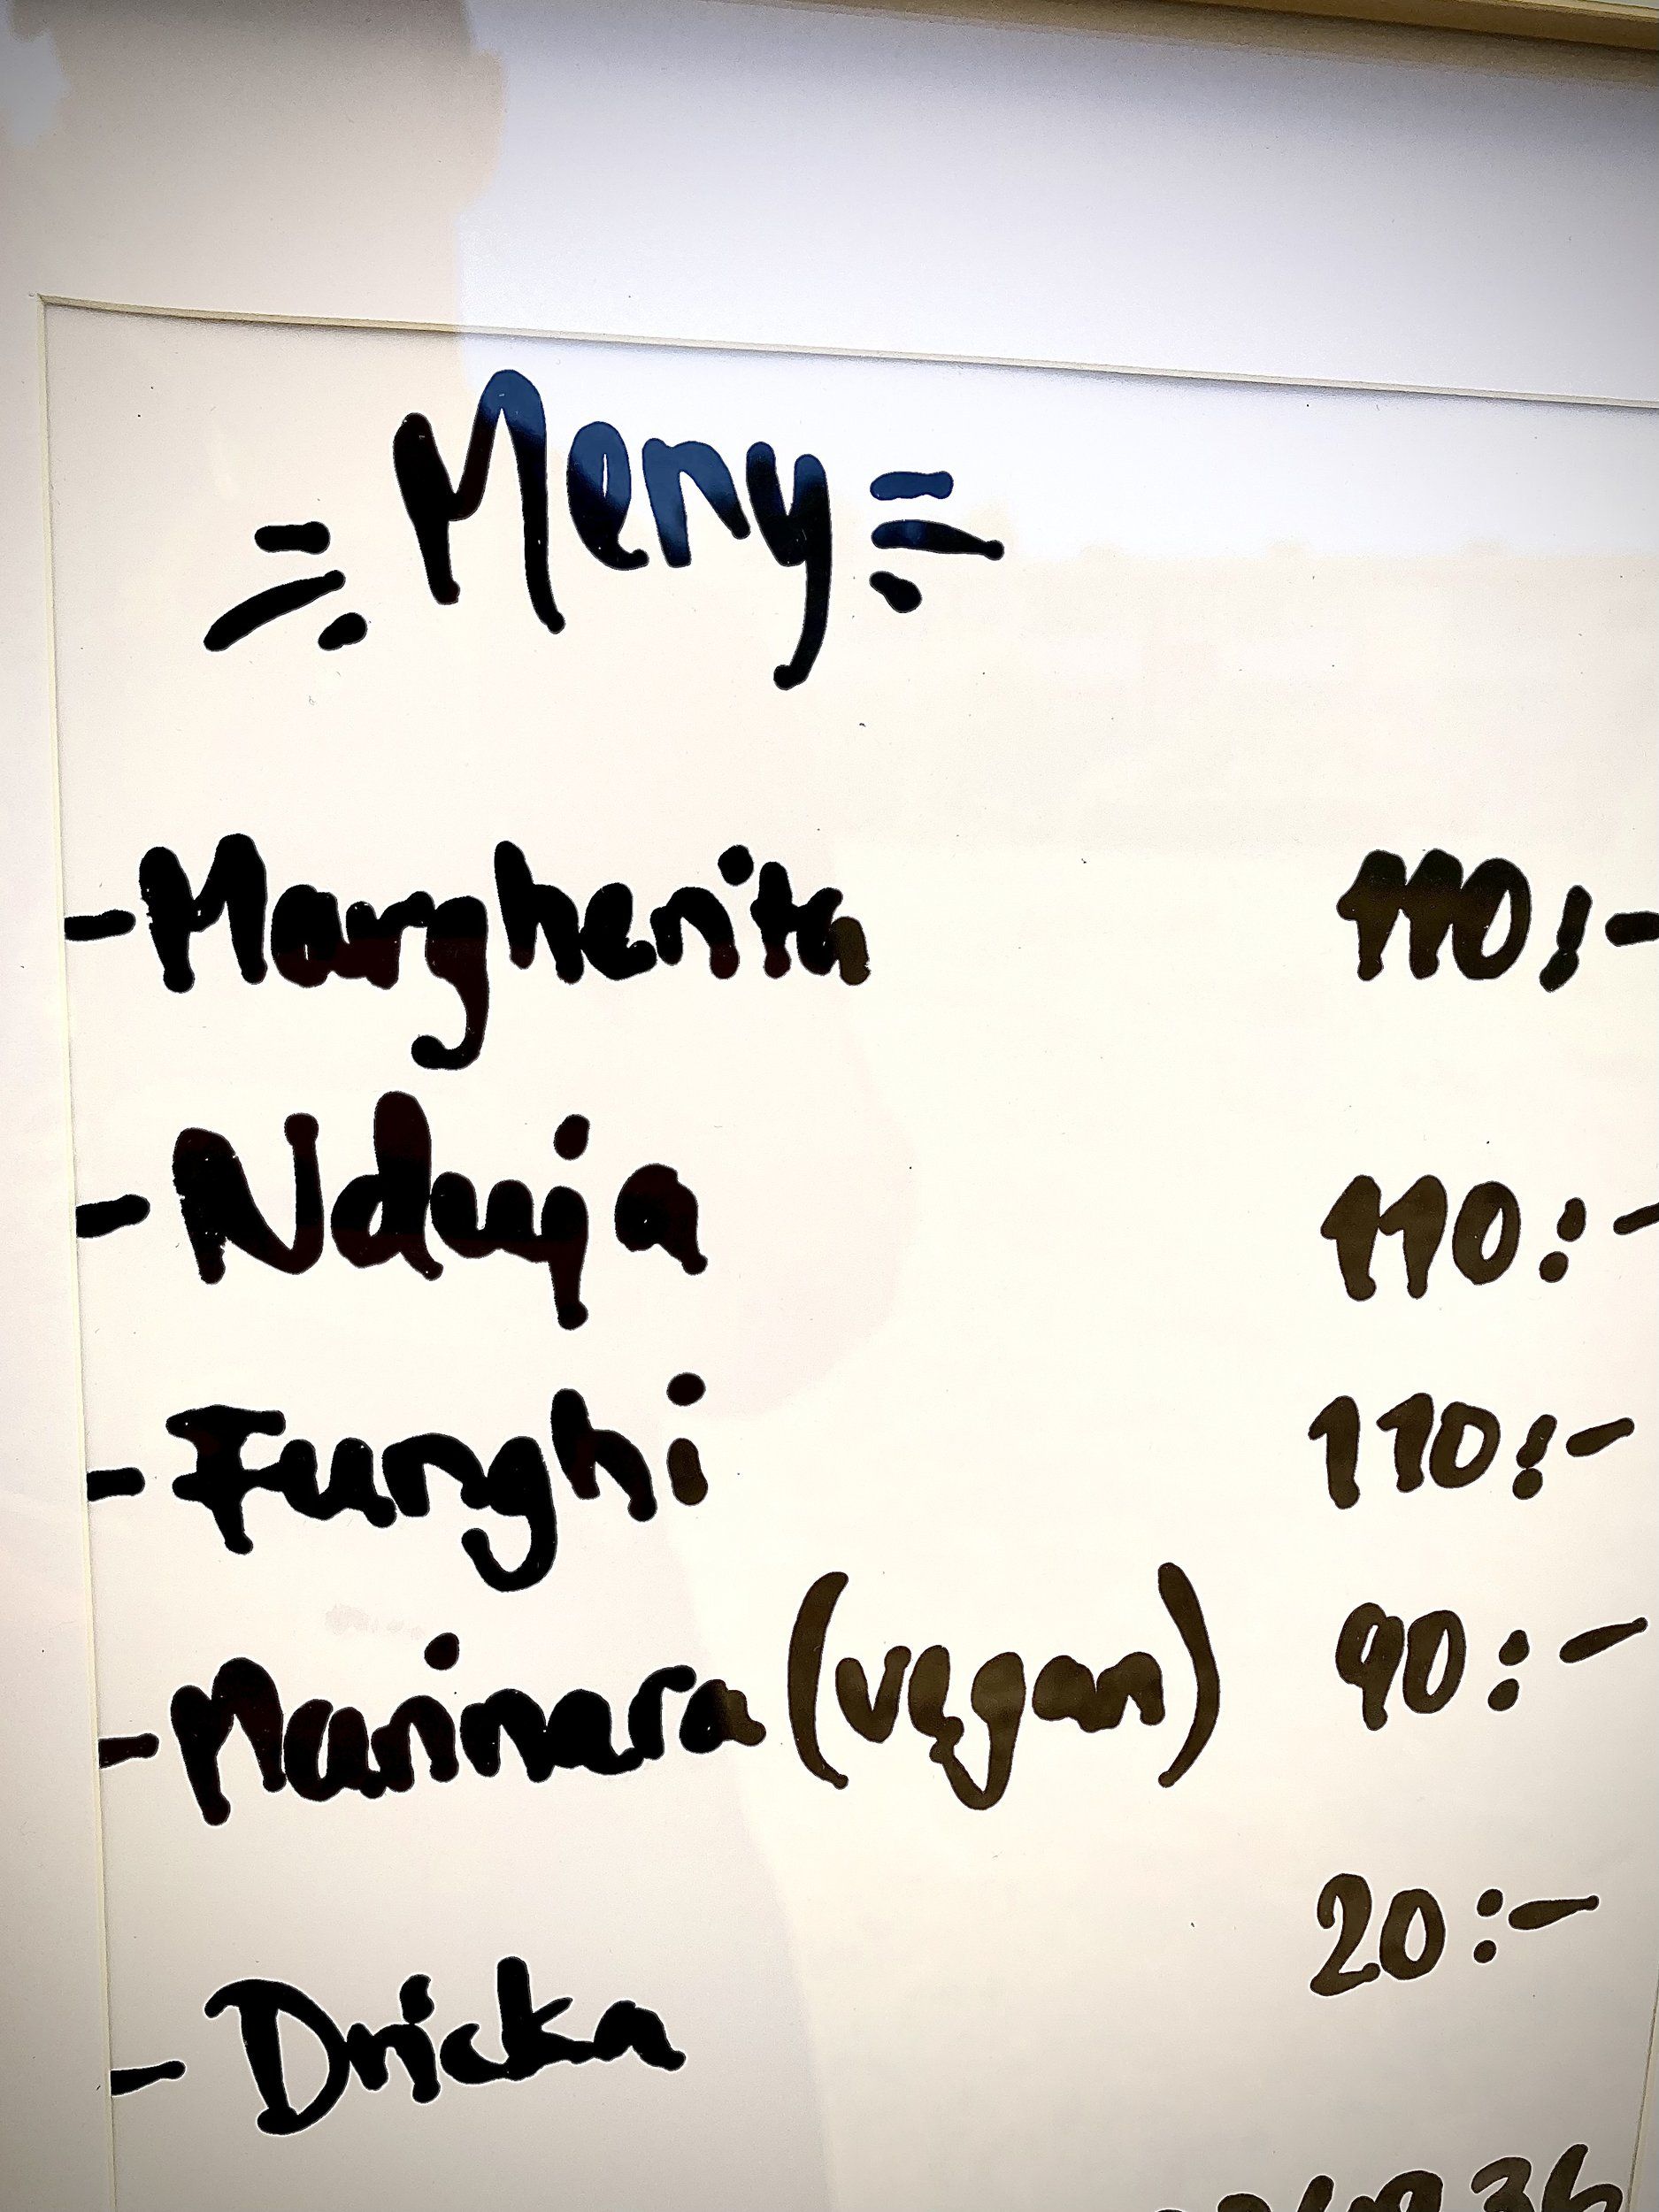 Meny
- Margherita 110:-
- Nduja 110:-
- Funghi 110:-
- Marinara (vegan) 90:-
- Dricka 20:-